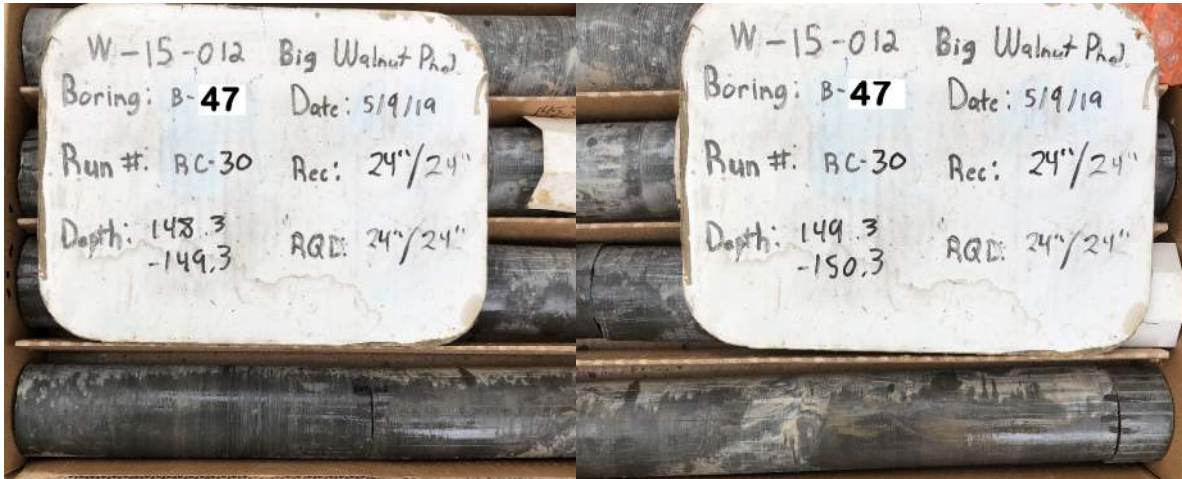 W-15-012 Big Walnut Ph2
Boring: B-47 Date: 5/9/19
Run #: RC-30 Rec: 24"/24"
Depth: 148.3 RQD: 24"/24"
-149.3
W-15-012 Big Walnut Ph2
Boring: B-47 Date: 5/9/19
Run #: RC-30 Rec: 24"/24"
Depth: 149.3 RQD: 24"/24"
-150.3